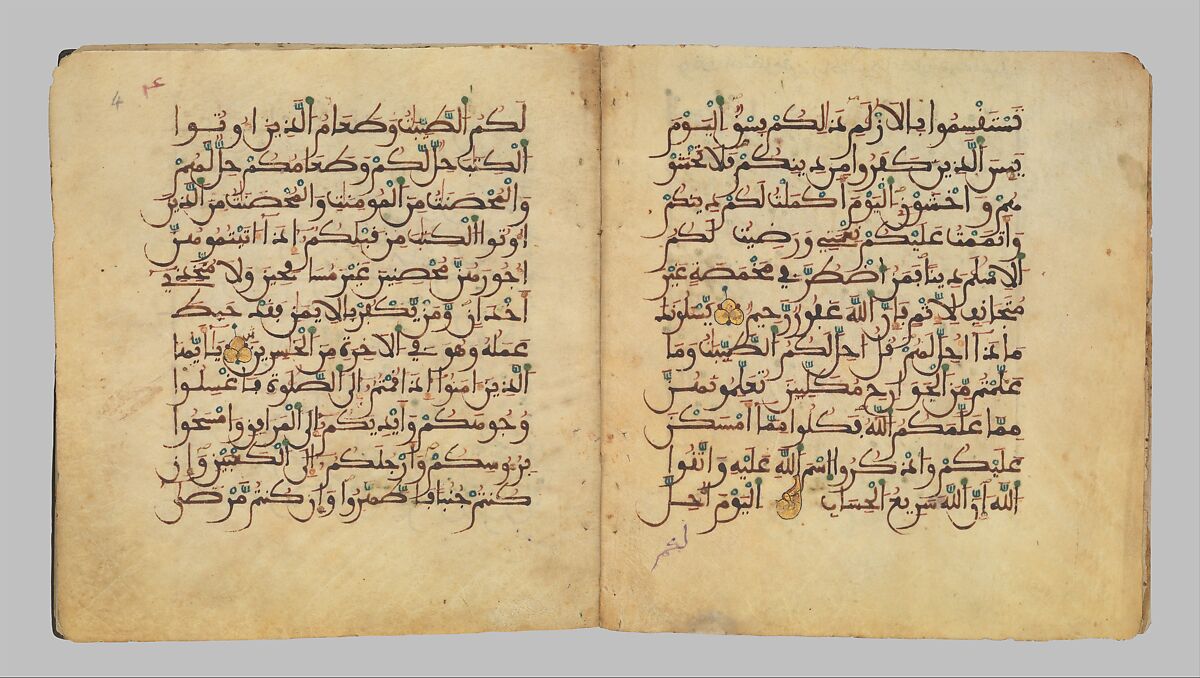 تستقسموا بالازلم ذلكم فسق اليوم
ييس الذين كفروا من دينكم فلا تخشو
هم واخشون اليوم اكملت لكم دينكم
واتممت عليكم نعمتي ورضيت لكم
الاسلم دينا فمن اضطر في مخمصة غير
متجانف لاثم فان الله غفور رحيم يسلونك
ماذا احل لهم قل احل لكم الطيبت وما
علمتم من الجوارح مكلبين تعلمونهن
مما علمكم الله فكلوا مما امسكن
عليكم واذكروا اسم الله عليه واتقوا
الله ان الله سريع الحساب اليوم احل
لكم
4
لكم الطيبت وطعام الذين اوتوا
الكتب حل لكم وطعامكم حل لهم
والمحصنت من المومنت والمحصنت من الذين
اوتوا الكتب من قبلكم اذا اتيتموهن
اجورهن محصنين غير مسفحين ولا متخذي
اخدان ومن يكفر بالايمن فقد حبط
عمله وهو في الاخرة من الخسرين يايها
الذين امنوا اذا قمتم الى الصلوة فاغسلوا
وجوهكم وايديكم الى المرافق وامسحوا
بروسكم وارجلكم الى الكعبين وان
كنتم جنبا فاطهروا وان كنتم مرضى